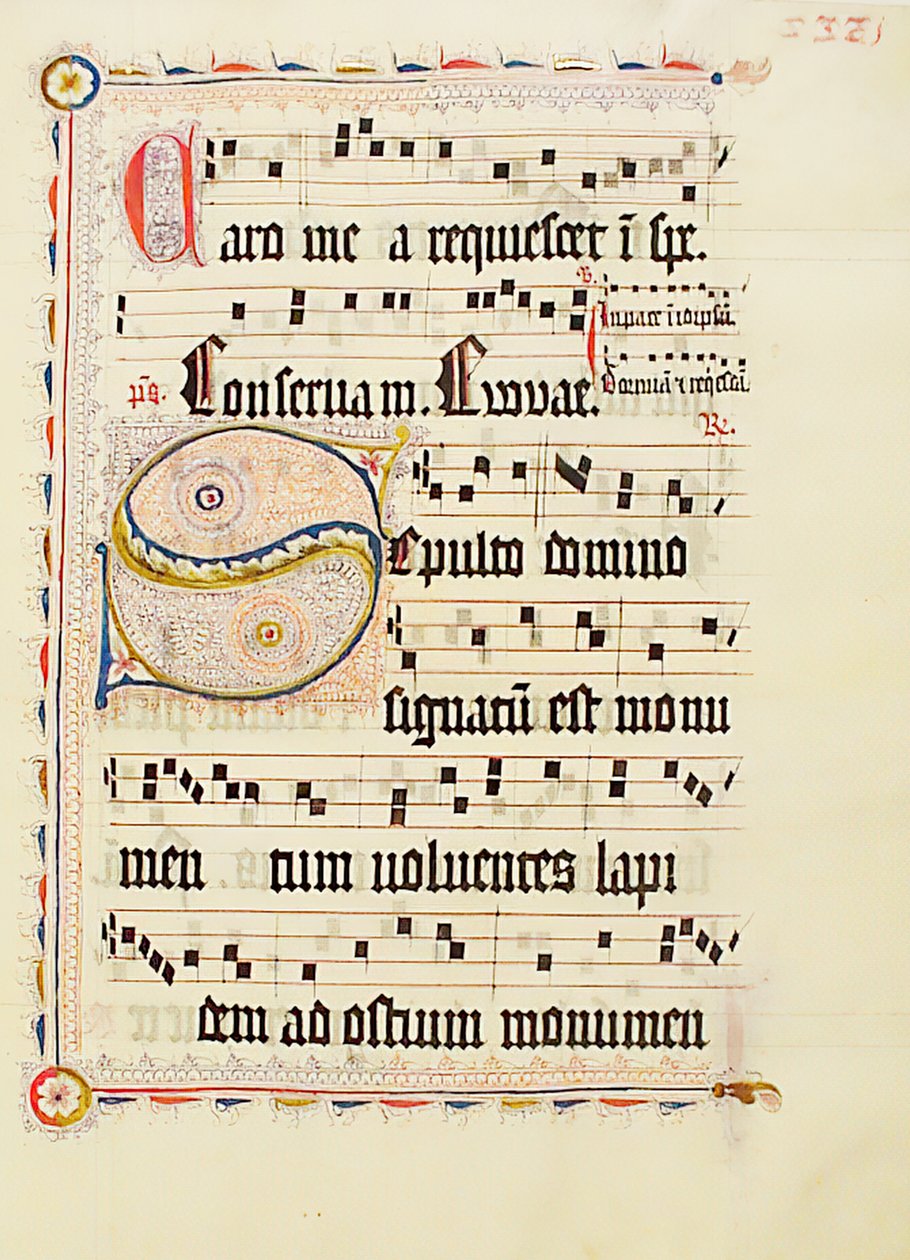 Caro me a requiescet ī spe.
℣.
In pace ī idipsū.
p̄s. Conseruam. Euouae.
Dormiā ⁊ req̄escā.
℟.
Sepulto domino
signatū est monu
men tum uoluentes lapi
dem ad ostium monumen